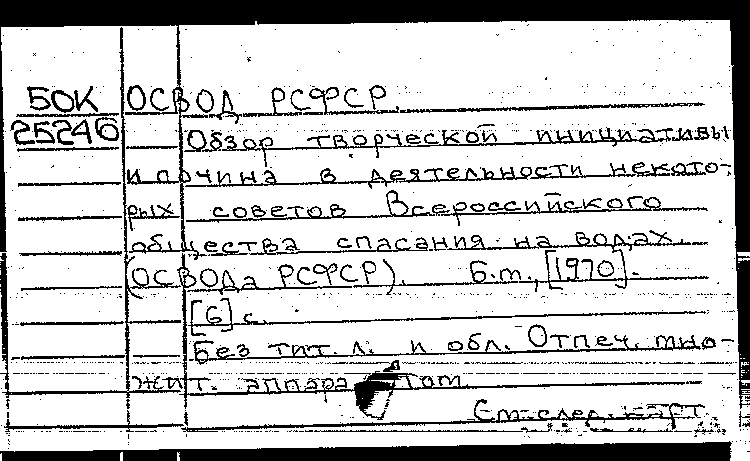 БОК ОСВОД РСФСР.
25246 Обзор творческой инициативы
и почина в деятельности некото-
рых советов Всероссийского
общества спасания на водах
(ОСВОДа РСФСР). Б.т., [1970].
[6] с.
Без тит. л. и обл. Отпеч. мно-
жит. аппаратом
См. след. карт.